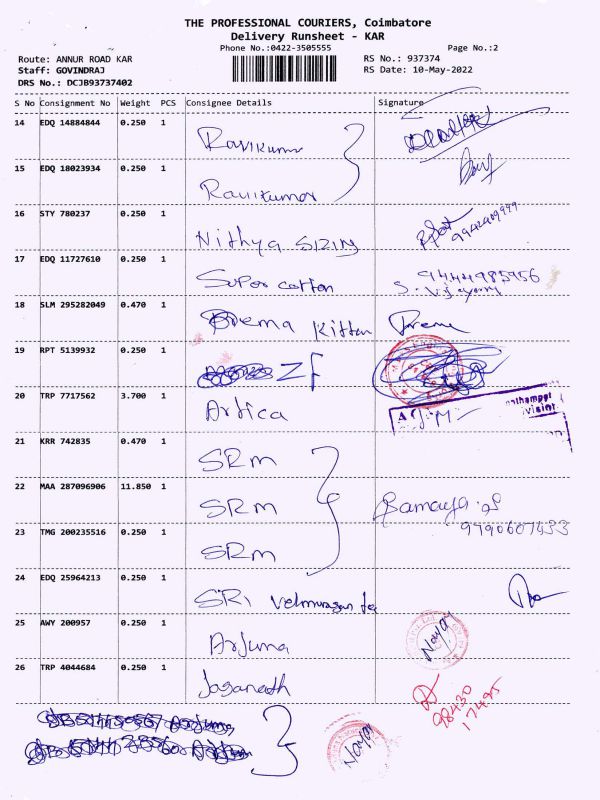 THE PROFESSIONAL COURIERS, Coimbatore
Delivery Runsheet - KAR
Phone No.:0422-3505555 Page No.:2
Route: ANNUR ROAD KAR RS No.: 937374
Staff: GOVINDRAJ RS Date: 10-May-2022
DRS No.: DCJB93737402
S No Consignment No Weight PCS Consignee Details Signature
14 EDQ 14884844 0.250 1 Ravikumar
15 EDQ 18023934 0.250 1 Ravikumar
16 STY 780237 0.250 1 Nithya 9942909999
17 EDQ 11727610 0.250 1 Super cotton 9444985956
S. Vijayan
18 SLM 295282049 0.470 1 Prema Kitten Preme
19 RPT 5139932 0.250 1 ZF
20 TRP 7717562 3.700 1 Artica
21 KRR 742835 0.470 1 SRM
22 MAA 287096906 11.850 1 SRM Ramaya
23 TMG 200235516 0.250 1 SRM 9790607433
24 EDQ 25964213 0.250 1 SRI Velmurugan tex
25 AWY 200957 0.250 1 Arjuna
26 TRP 4044684 0.250 1 Jaganath
98430
17495